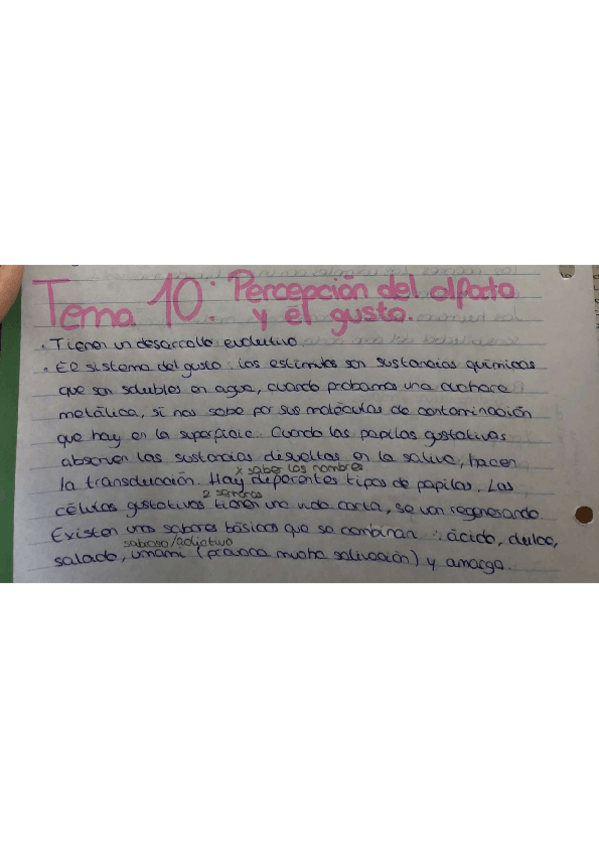 Tema 10: Percepción del olfato
y el gusto.
· Tienen un desarrollo evolutivo
· El sistema del gusto: Los estímulos son sustancias químicas
que son solubles en agua, cuando probamos una cuchara
metálica, si nos sabe por sus moléculas de contaminación
que hay en la superficie. Cuando las papilas gustativas
absorven las sustancias disueltas en la saliva, hacen
x saber los nombres
la transducción. Hay diferentes tipos de papilas. Las
2 semanas
células gustativas tienen una vida corta, se van regenerando.
Existen unos sabores básicos que se combinan: ácido, dulce,
sabroso/adjetivo
salado, umami (provoca mucha salivación) y amargo.